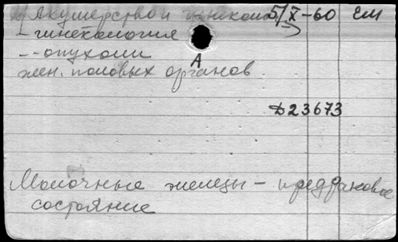 1) Акушерство и гинекол. 5/X-60 см
- гинекология
-- опухоли
жен. половых органов
А
Д23673
Молочные железы - предраковое
состояние